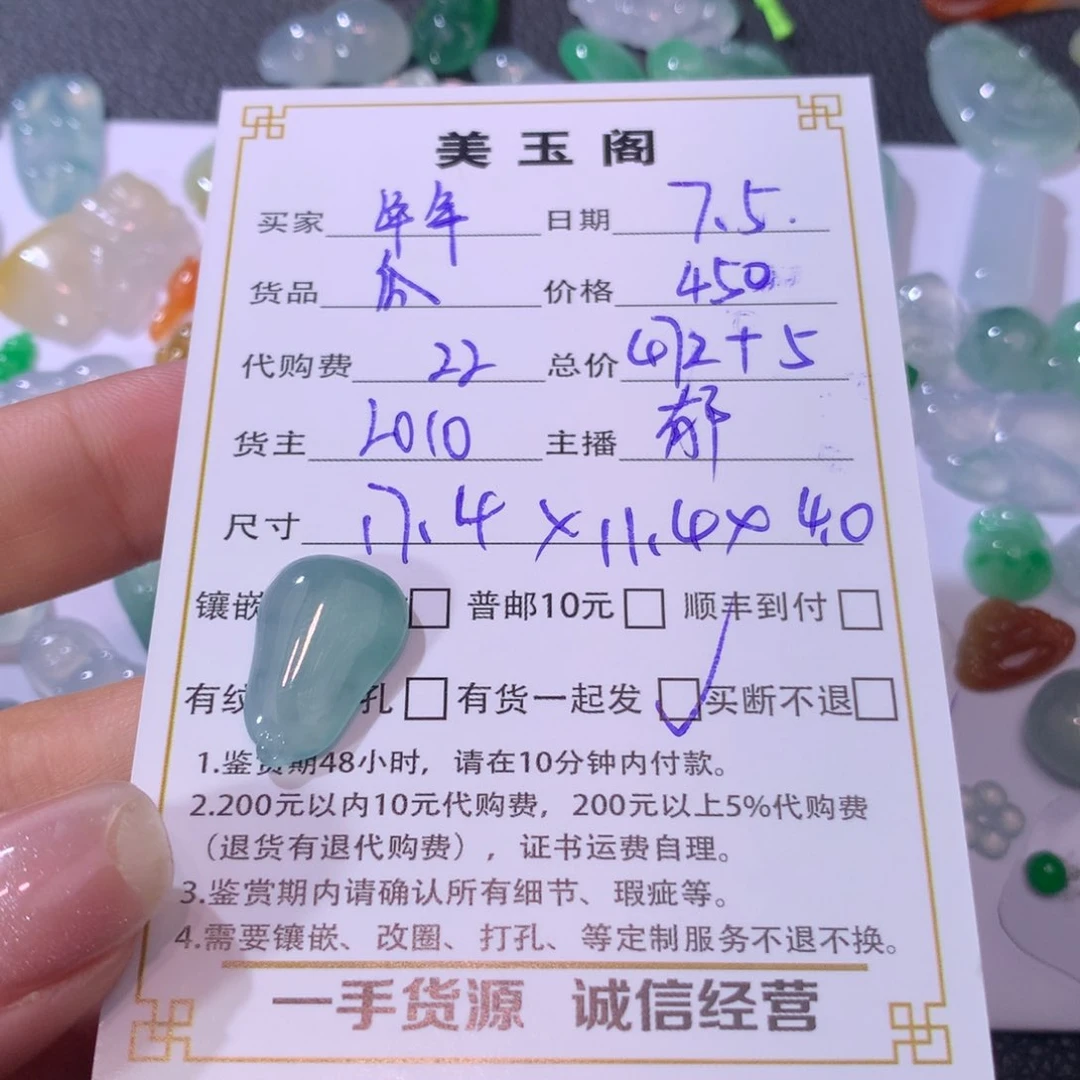 美玉阁
买家 年年 日期 7.5.
货品 价格 450
代购费 22 总价 472+5
货主 2010 主播 郁
尺寸 17.4×11.4×4.0
镶嵌 □ 普邮10元 □ 顺丰到付 □
有纹 孔 □ 有货一起发 ☑ 买断不退 □
1.鉴赏期48小时，请在10分钟内付款。
2.200元以内10元代购费，200元以上5%代购费
（退货有退代购费），证书运费自理。
3.鉴赏期内请确认所有细节、瑕疵等。
4.需要镶嵌、改圈、打孔、等定制服务不退不换。
一手货源 诚信经营